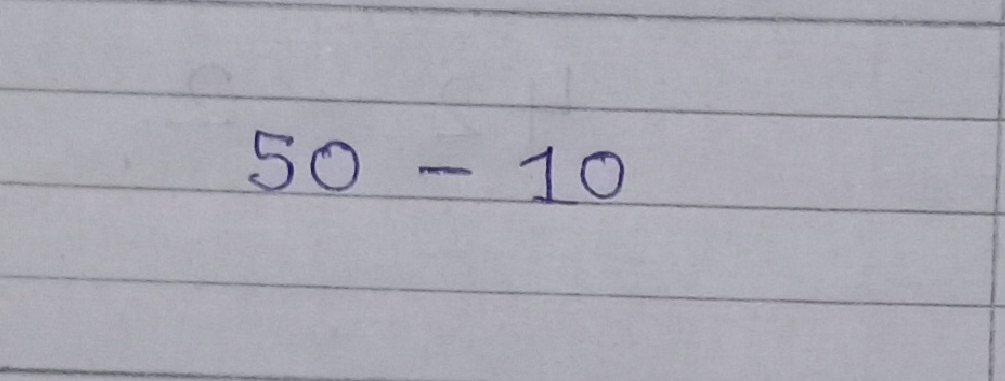 50 - 10